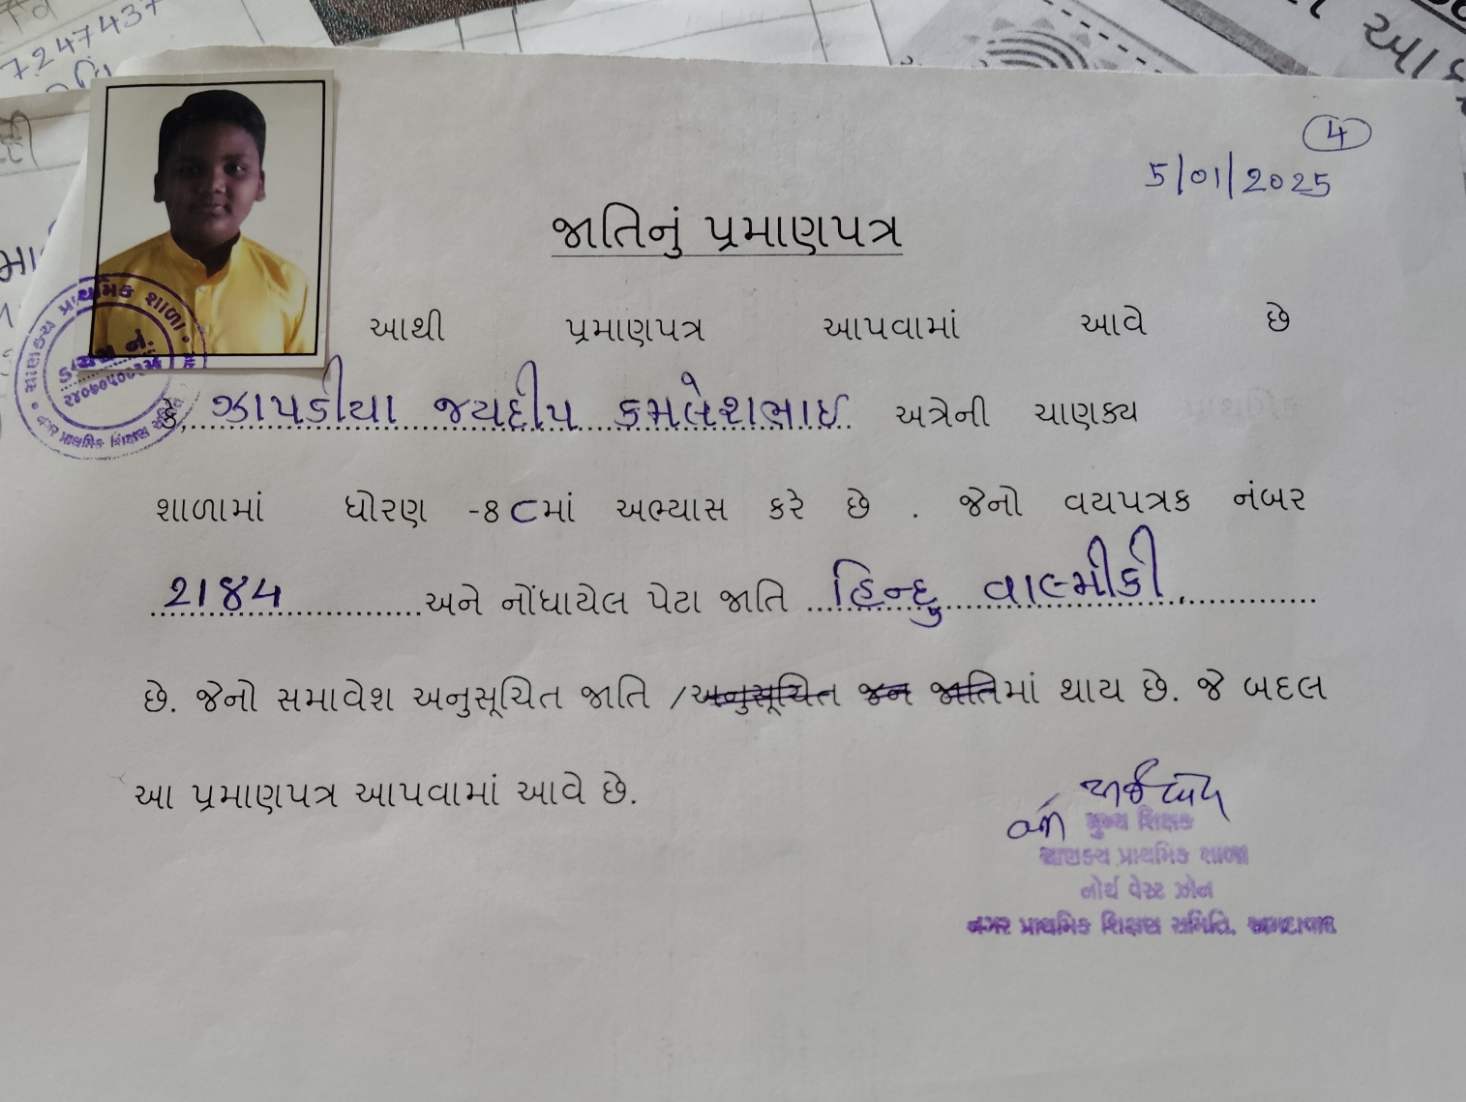 7247437
4
5/01/2025
જાતિનું પ્રમાણપત્ર
આથી પ્રમાણપત્ર આપવામાં આવે છે
કે, ઝાપડીયા જયદીપ કમલેશભાઇ અત્રેની ચાણક્ય
શાળામાં ધોરણ -8 C માં અભ્યાસ કરે છે . જેનો વયપત્રક નંબર
2184 અને નોંધાયેલ પેટા જાતિ હિન્દુ વાલ્મીકી
છે. જેનો સમાવેશ અનુસૂચિત જાતિ /અનુસૂચિત જન જાતિમાં થાય છે. જે બદલ
આ પ્રમાણપત્ર આપવામાં આવે છે.
મુખ્ય શિક્ષક
ચાણક્ય પ્રાથમિક શાળા
નોર્થ વેસ્ટ ઝોન
નગર પ્રાથમિક શિક્ષણ સમિતિ, અમદાવાદ
ચાણક્ય પ્રાથમિક શાળા
નગર પ્રાથમિક શિક્ષણ સમિતિ